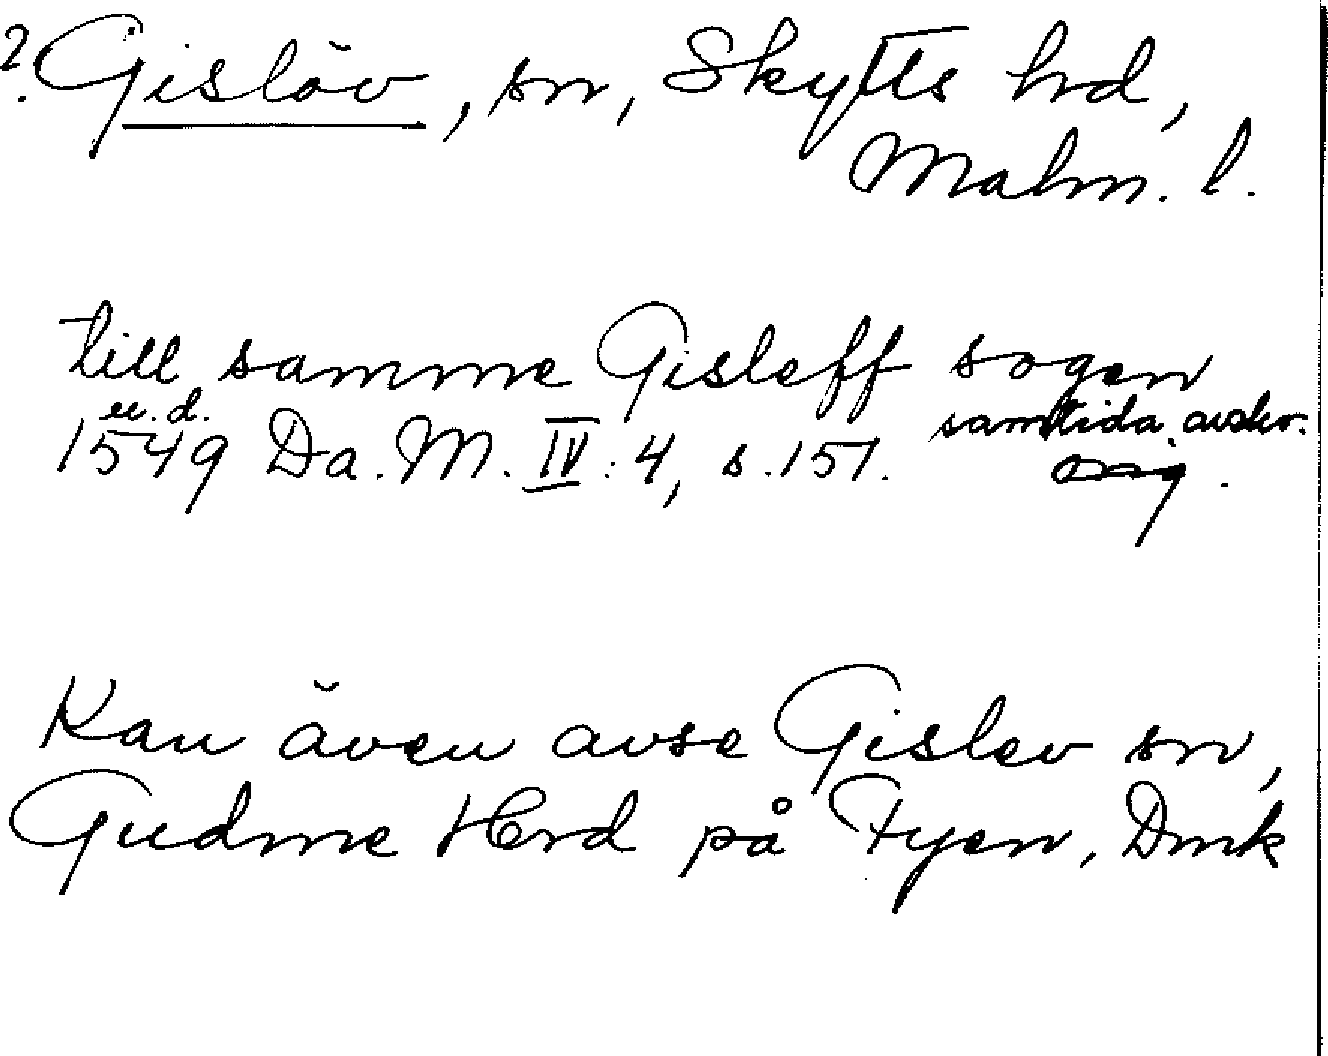 ? Gislöv, sn, Skytts hd,
Malm. l.
till samme Gisleff sogen
u. d.
samtida avskr.
1549 Da. M. IV : 4, s. 151. orig.
Kan även avse Gislev sn,
Gudme Herd på Fyen, Dmk